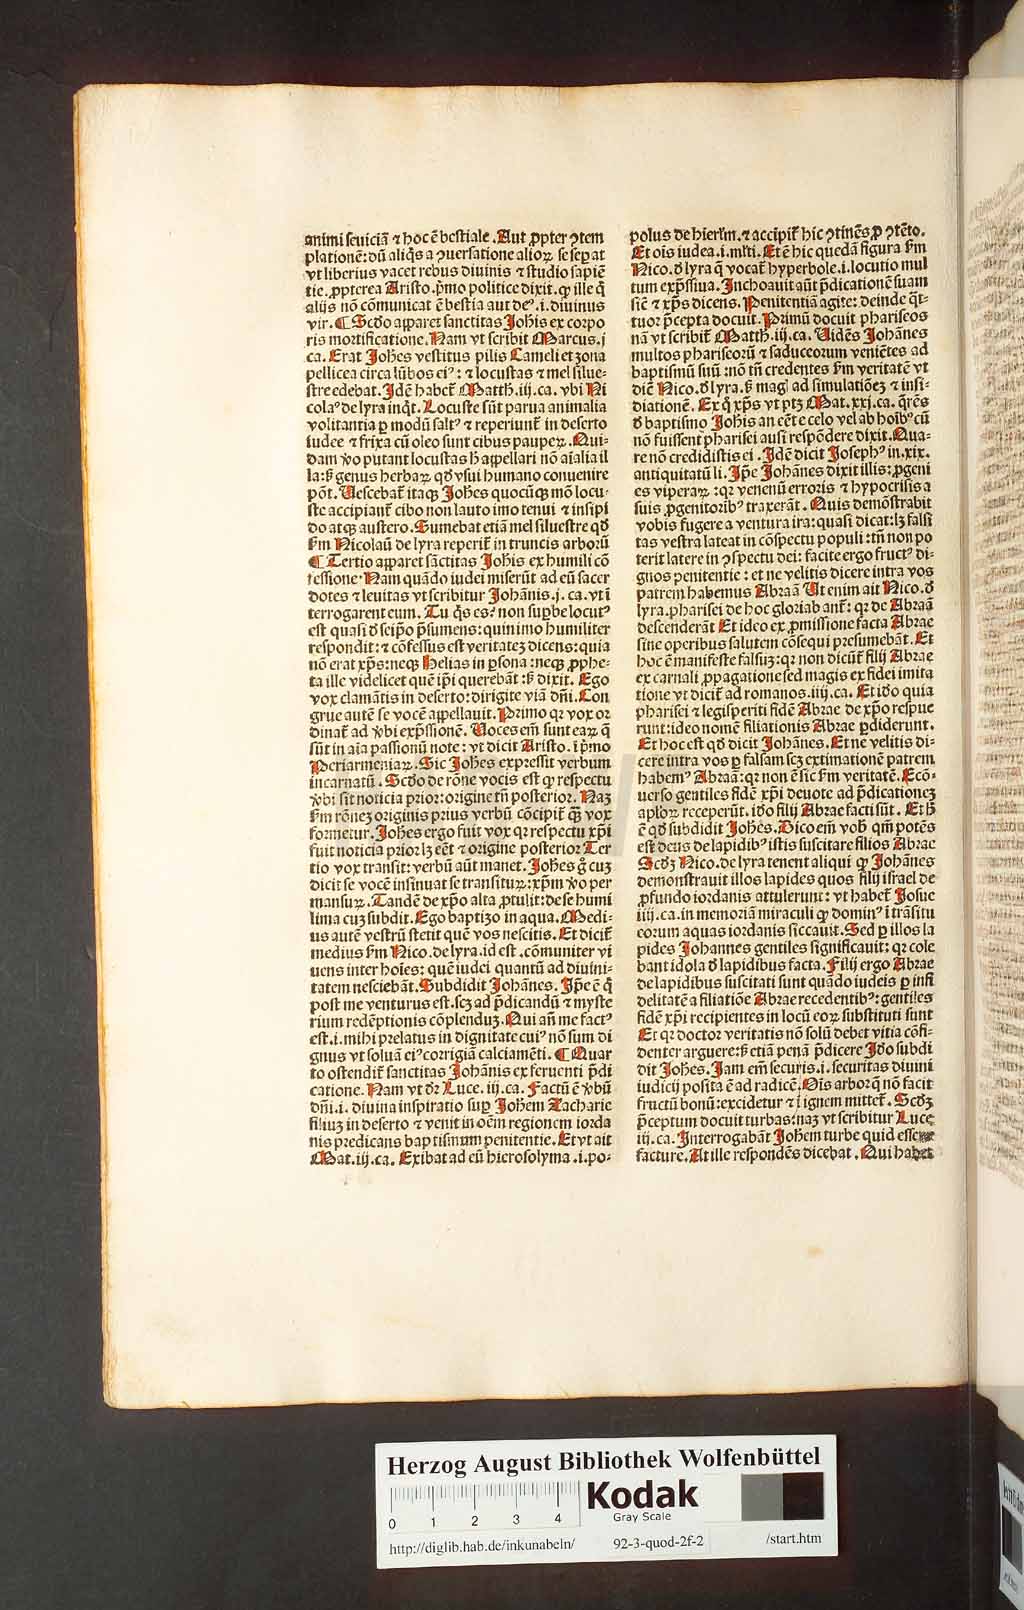 animi seuiciā ⁊ hoc ē bestiale. Aut ꝓpter ꝯtem
plationē: dū aliq̄s a ꝯuersatione alioꝝ se seꝑat
vt liberius vacet rebus diuinis ⁊ studio sapiē
tie. ꝓpterea Aristo. p̄mo politice dixit. ꝙ ille q̄
alijs nō cōmunicat ē bestia aut deꝰ. i. diuinus
vir. ¶ Scd̄o apparet sanctitas Joh̄is ex corpo
ris mortificatione. Nam vt scribit̄ Marcus. j
ca. Erat Joh̄es vestitus pilis Cameli et zona
pellicea circa lūbos eiꝰ: ⁊ locustas ⁊ mel silue-
stre edebat. Idē habet̄ Matth. iij. ca. vbi Ni
colaꝰ de lyra inq̄t. Locuste sūt parua animalia
volitantia ꝑ modū saltꝰ ⁊ reperiunt̄ in deserto
iudee ⁊ frixa cū oleo sunt cibus pauꝑeꝝ. Qui-
dam v̄o putant locustas h̄ appellari nō aīalia il
la: s̄ genus herbaꝝ qd̄ vsui humano conuenire
pōt. Uescebat̄ itaqꝫ Joh̄es quocūqꝫ mō locu-
ste accipiant̄ cibo non lauto imo tenui ⁊ insipi
do atqꝫ austero. Sumebat etiā mel siluestre qd̄
s̄m Nicolaū de lyra reperit̄ in truncis arborū
¶ Tertio apparet sāctitas Joh̄is ex humili cō
fessione. Nam quādo iudei miserūt ad eū sacer
dotes ⁊ leuitas vt scribitur Johānis. j. ca. vt ī
terrogarent eum. Tu q̄s es? non suꝑbe locutꝰ
est quasi d̄ seip̄o p̄sumens: quinimo humiliter
respondit: ⁊ cōfessus est veritateꝫ dicens: quia
nō erat xp̄s: neqꝫ Helias in ꝑsona: neqꝫ ꝓphe-
ta ille videlicet quē ip̄i querebāt: s̄ dixit. Ego
vox clamātis in deserto: dirigite viā dn̄i. Con
grue autē se vocē appellauit. Primo qꝛ vox or
dinat̄ ad v̄bi exp̄ssionē. Uoces em̄ sunt eaꝝ q̄
sūt in aīa passionū note: vt dicit Aristo. ī p̄mo
Periarmeniaꝝ. Sic Joh̄es expressit verbum
incarnatū. Scd̄o de rōne vocis est ꝙ respectu
v̄bi sit noticia prior: origine tn̄ posterior. Naꝫ
s̄m rōneꝫ originis prius verbū cōcipit̄ q̄ꝫ vox
formetur. Joh̄es ergo fuit vox qꝛ respectu xp̄i
fuit noticia prior lꝫ eēt ⁊ origine posterior Ter
tio vox transit: verbū aūt manet. Joh̄es g̊ cuꝫ
dicit se vocē insinuat se transituꝝ: xp̄m v̄o per
mansuꝝ. Tandē de xp̄o alta ꝓtulit: de se humi
lima cuꝫ subdit. Ego baptizo in aqua. Medi-
us autē vestrū stetit quē vos nescitis. Et dicit̄
medius s̄m Nico. de lyra. id est. cōmuniter vi
uens inter hoīes: quē iudei quantū ad diuini-
tatem nesciebāt. Subdidit Johānes. Ip̄e ē q̄
post me venturus est. scꝫ ad p̄dicandū ⁊ myste
rium redēptionis cōplenduꝫ. Qui an̄ me factꝰ
est. i. mihi prelatus in dignitate cuiꝰ nō sum di
gnus vt soluā eiꝰ corrigiā calciamēti. ¶ Quar
to ostendit̄ sanctitas Johānis ex feruenti p̄di
catione. Nam vt dꝛ Luce. iij. ca. Factū ē v̄bū
dn̄i. i. diuina inspiratio suꝑ Joh̄em Zacharie
filiuꝫ in deserto ⁊ venit in oēm regionem iorda
nis predicans baptismum penitentie. Et vt ait
Mat. iij. ca. Exibat ad eū hierosolyma. i. po-
polus de hierl̄m. ⁊ accipit̄ hic ꝯtinēs ꝓ ꝯtēto.
Et oīs iudea. i. ml̄ti. Et ē hic quedā figura s̄m
Nico. d̄ lyra q̄ vocat̄ hyperbole. i. locutio mul
tum exp̄ssiua. Inchoauit aūt p̄dicationē suam
sic̄ ⁊ xp̄s dicens. Penitentiā agite: deinde q̄t-
tuor p̄cepta docuit. Primū docuit phariseos
nā vt scribit̄ Matth. iij. ca. Uidēs Johānes
multos phariseorū ⁊ saduceorum veniētes ad
baptismū suū: nō tn̄ credentes s̄m veritatē vt
diē Nico. d̄ lyra. s̄ magꝭ ad simulatiōeꝫ ⁊ insi-
diationē. Ex q̊ xp̄s vt ptꝫ Mat. xxj. ca. q̄rēs
d̄ baptismo Joh̄is an eēt e celo vel ab hoībꝰ cū
nō fuissent pharisei ausi respōdere dixit. Qua-
re nō credidistis ei. Idē dicit Josephꝰ in. xix.
antiquitatū li. Ip̄e Johānes dixit illis: ꝓgeni
es viperaꝝ: qꝛ venenū erroris ⁊ hypocrisis a
suis ꝓgenitoribꝰ traxerāt. Quis demōstrabit
vobis fugere a ventura ira: quasi dicat: lꝫ falsi
tas vestra lateat in cōspectu populi: tn̄ non po
terit latere in ꝯspectu dei: facite ergo fructꝰ di-
gnos penitentie: et ne velitis dicere intra vos
patrem habemus Abraā Ut enim ait Nico. d̄
lyra. pharisei de hoc gloriabant̄: qꝛ de Abraā
descenderāt Et ideo ex ꝓmissione facta Abrae
sine operibus salutem cōsequi presumebāt. Et
hoc ē manifeste falsuꝫ: qꝛ non dicūt̄ filij Abrae
ex carnali ꝓpagatione sed magis ex fidei imita
tione vt dicit̄ ad romanos. iiij. ca. Et id̄o quia
pharisei ⁊ legisperiti fidē Abrae de xp̄o respue
runt: ideo nomē filiationis Abrae ꝑdiderunt.
Et hoc est qd̄ dicit Johānes. Et ne velitis di-
cere intra vos ꝑ falsam scꝫ extimationē patrem
habemꝰ Abraā: qꝛ non ē sic s̄m veritatē. Ecō-
uerso gentiles fidē xp̄i deuote ad p̄dicationeꝫ
apl̄oꝝ receperūt. id̄o filij Abrae facti sūt. Et h̄
ē qd̄ subdidit Joh̄es. Dico em̄ vob̄ qm̄ potēs
est deus de lapidibꝰ istis suscitare filios Abrae
Scd̄ꝫ Nico. de lyra tenent aliqui ꝙ Johānes
demonstrauit illos lapides quos filij israel de
ꝓfundo iordanis attulerunt: vt habet̄ Josue
iiij. ca. in memoriā miraculi ꝙ dominꝰ ī trāsitu
eorum aquas iordanis siccauit. Sed ꝑ illos la
pides Johannes gentiles significauit: qꝛ cole
bant idola d̄ lapidibus facta. Filij ergo Abrae
de lapidibus suscitati sunt quādo iudeis ꝑ infi
delitatē a filiatiōe Abrae recedentibꝰ: gentiles
fidē xp̄i recipientes in locū eoꝝ substituti sunt
Et qꝛ doctor veritatis nō solū debet vitia cōfi-
denter arguere: s̄ etiā penā p̄dicere Id̄o subdi
dit Joh̄es. Jam em̄ securis. i. securitas diuini
iudicij posita ē ad radicē. Oīs arbor q̄ nō facit
fructū bonū: excidetur ⁊ ī ignem mittet̄. Scd̄ꝫ
p̄ceptum docuit turbas: naꝫ vt scribitur Luce
iij. ca. Interrogabāt Joh̄em turbe quid
facture. At ille respondēs dicebat. Qui habet
Herzog August Bibliothek Wolfenbüttel
0 1 2 3 4
Kodak
Gray Scale
http://diglib.hab.de/inkunabeln/ 92-3-quod-2f-2 /start.htm